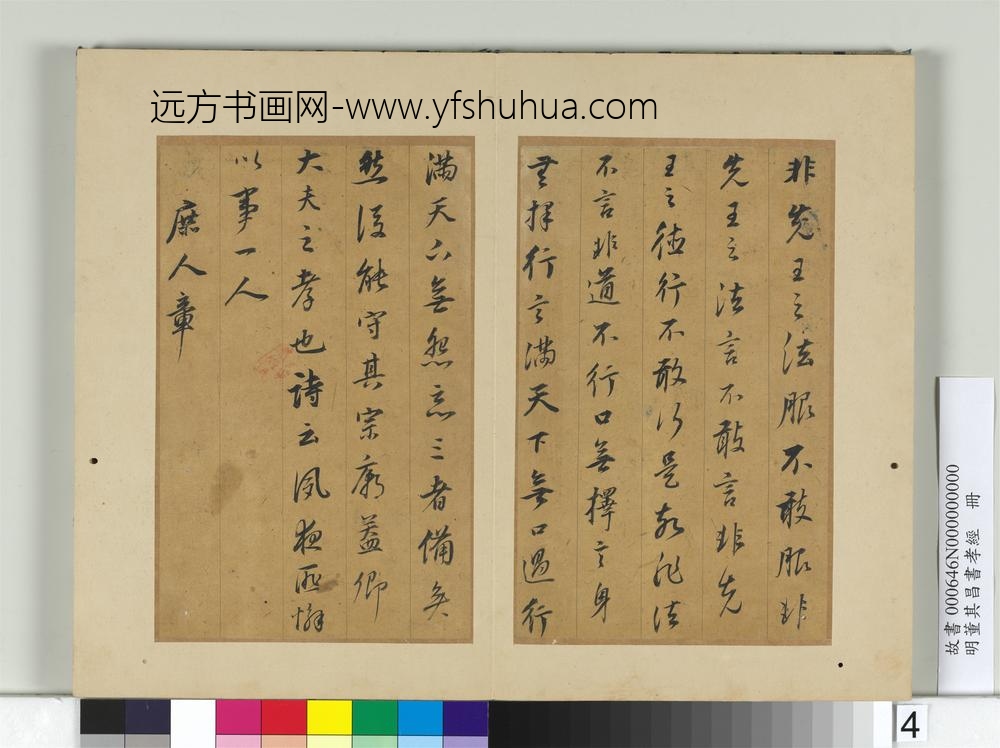 远方书画网-www.yfshuhua.com
非先王之法服不敢服非
先王之法言不敢言非先
王之德行不敢行是故非法
不言非道不行口無擇言身
無擇行言滿天下無口過行
滿天下無怨惡三者備矣
然後能守其宗廟蓋卿
大夫之孝也詩云夙夜匪懈
以事一人
庶人章
故書 000646N000000000
明董其昌書孝經 冊
4